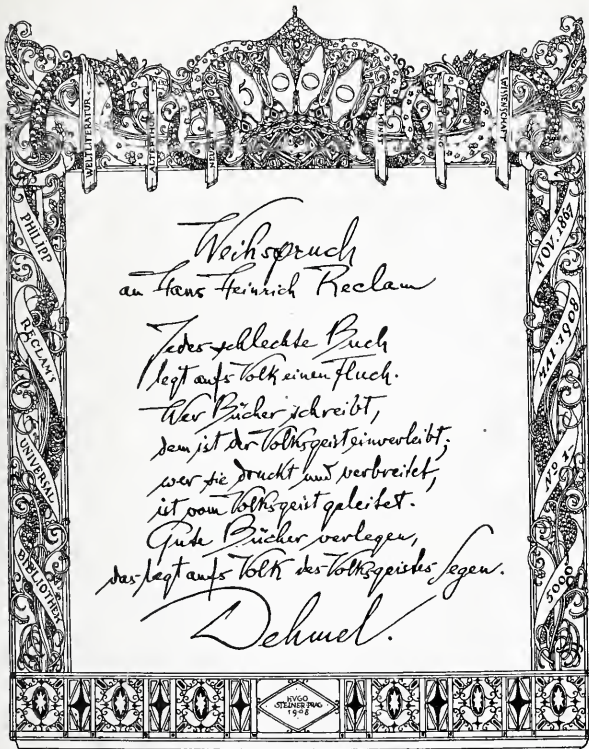 5000
WELTLITERATUR
WISSENSCHAFT
PHILIPP
RECLAM'S
UNIVERSAL
BIBLIOTHEK
NOV. 1867
MAI · 1908
No 1
5000
Weihspruch
an Hans Heinrich Reclam
Jedes schlechte Buch
legt aufs Volk einen Fluch.
Wer Bücher schreibt,
dem ist der Volksgeist einverleibt;
wer sie druckt und verbreitet,
ist vom Volksgeist geleitet.
Gute Bücher verlegen,
das legt aufs Volk des Volksgeistes Segen.
Dehmel.
HVGO
STEINER PRAG
1908